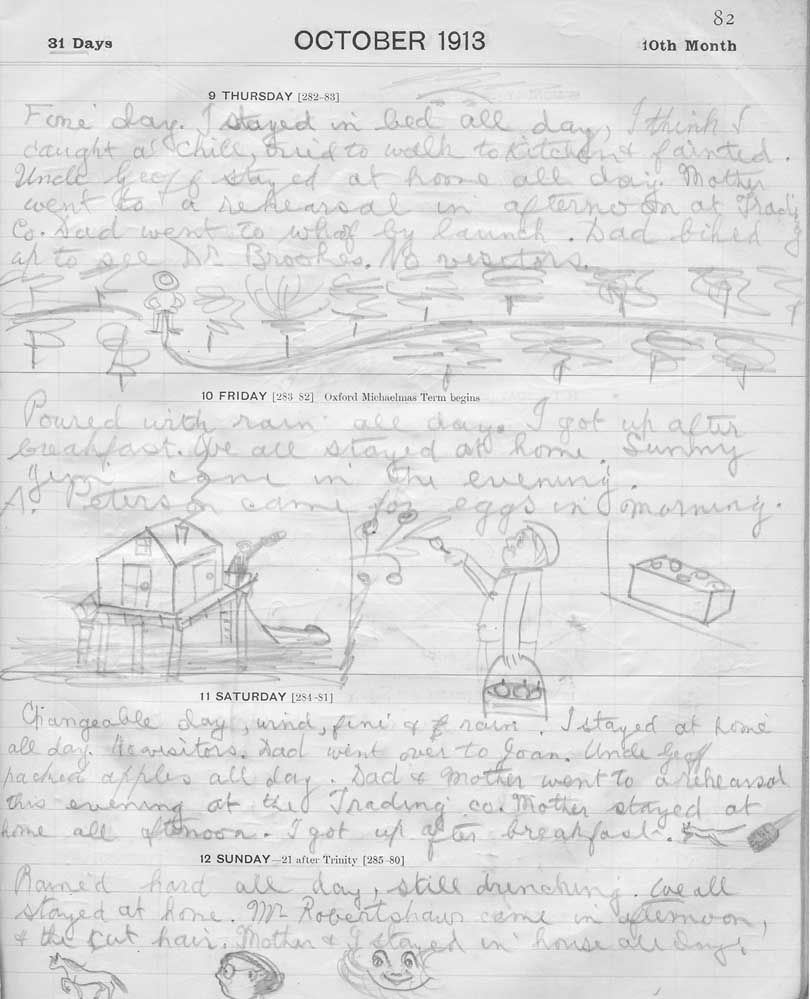 82
31 Days OCTOBER 1913 10th Month
9 THURSDAY [282-83]
Fine day. I stayed in bed all day, I think I
caught a chill, tried to walk to Kitchen & fainted.
Uncle Geoff stayed at home all day. Mother
went to a rehearsal in afternoon at Trading
Co. Dad went to wharf by launch. Dad biked
up to see Dr Brookes. No visitors.
10 FRIDAY [283-82] Oxford Michaelmas Term begins
Poured with rain all day. I got up after
breakfast. We all stayed at home. Sunny
Jim came in the evening.
A. Peterson came for eggs in morning.
11 SATURDAY [284-81]
Changeable day, wind, fine & rain. I stayed at home
all day. No visitors. Dad went over to Joan. Uncle Geoff
packed apples all day. Dad & Mother went to a rehearsal
this evening at the Trading Co. Mother stayed at
home all afternoon. I got up after breakfast.
12 SUNDAY—21 after Trinity [285-80]
Rained hard all day, still drenching. We all
stayed at home. Mr Robertshaw came in afternoon,
& the cut hair. Mother & I stayed in house all day.